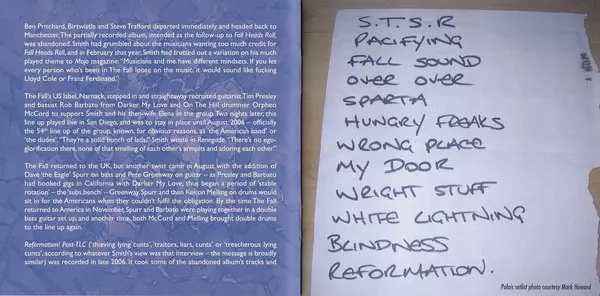 Ben Pritchard, Birtwistle and Steve Trafford departed immediately and headed back to
Manchester. The partially recorded album, intended as the follow-up to Fall Heads Roll,
was abandoned. Smith had grumbled about the musicians wanting too much credit for
Fall Heads Roll, and in February that year, Smith had trotted out a variation on his much
played theme to Mojo magazine. "Musicians and me have different mindsets. If you let
every person who's been in The Fall loose on the music, it would sound like fucking
Lloyd Cole or Franz Ferdinand."
The Fall's US label, Narnack, stepped in and straightaway recruited guitarist Tim Presley
and bassist Rob Barbato from Darker My Love and On The Hill drummer Orpheo
McCord to support Smith and his then-wife Elena in the group. Two nights later, this
line up played live in San Diego, and was to stay in place until August 2006 – officially
the 54th line up of the group, known, for obvious reasons, as 'the American band' or
'the dudes'. "They're a solid bunch of lads," Smith wrote in Renegade. "There's no ego-
glorification there, none of that smelling of each other's armpits and adoring each other."
The Fall returned to the UK, but another twist came in August with the addition of
Dave 'the Eagle' Spurr on bass and Pete Greenway on guitar – as Presley and Barbato
had booked gigs in California with Darker My Love; thus began a period of 'stable
rotation' – the 'subs bench' – Greenway, Spurr and then Keiron Melling on drums would
sit in for the Americans when they couldn't fulfil the obligation. By the time The Fall
returned to America in November, Spurr and Barbato were playing together in a double
bass guitar set up, and another time, both McCord and Melling brought double drums
to the line up again.
Reformation! Post-TLC ('thieving lying cunts', 'traitors, liars, cunts' or 'treacherous lying
cunts', according to whatever Smith's view was that interview – the message is broadly
similar) was recorded in late 2006. It took some of the abandoned album's tracks and
S.T.S.R
PACIFYING
FALL SOUND
OVER OVER
SPARTA
HUNGRY FREAKS
WRONG PLACE
MY DOOR
WRIGHT STUFF
WHITE LIGHTNING
BLINDNESS
REFORMATION.
Palais setlist photo courtesy Mark Howard